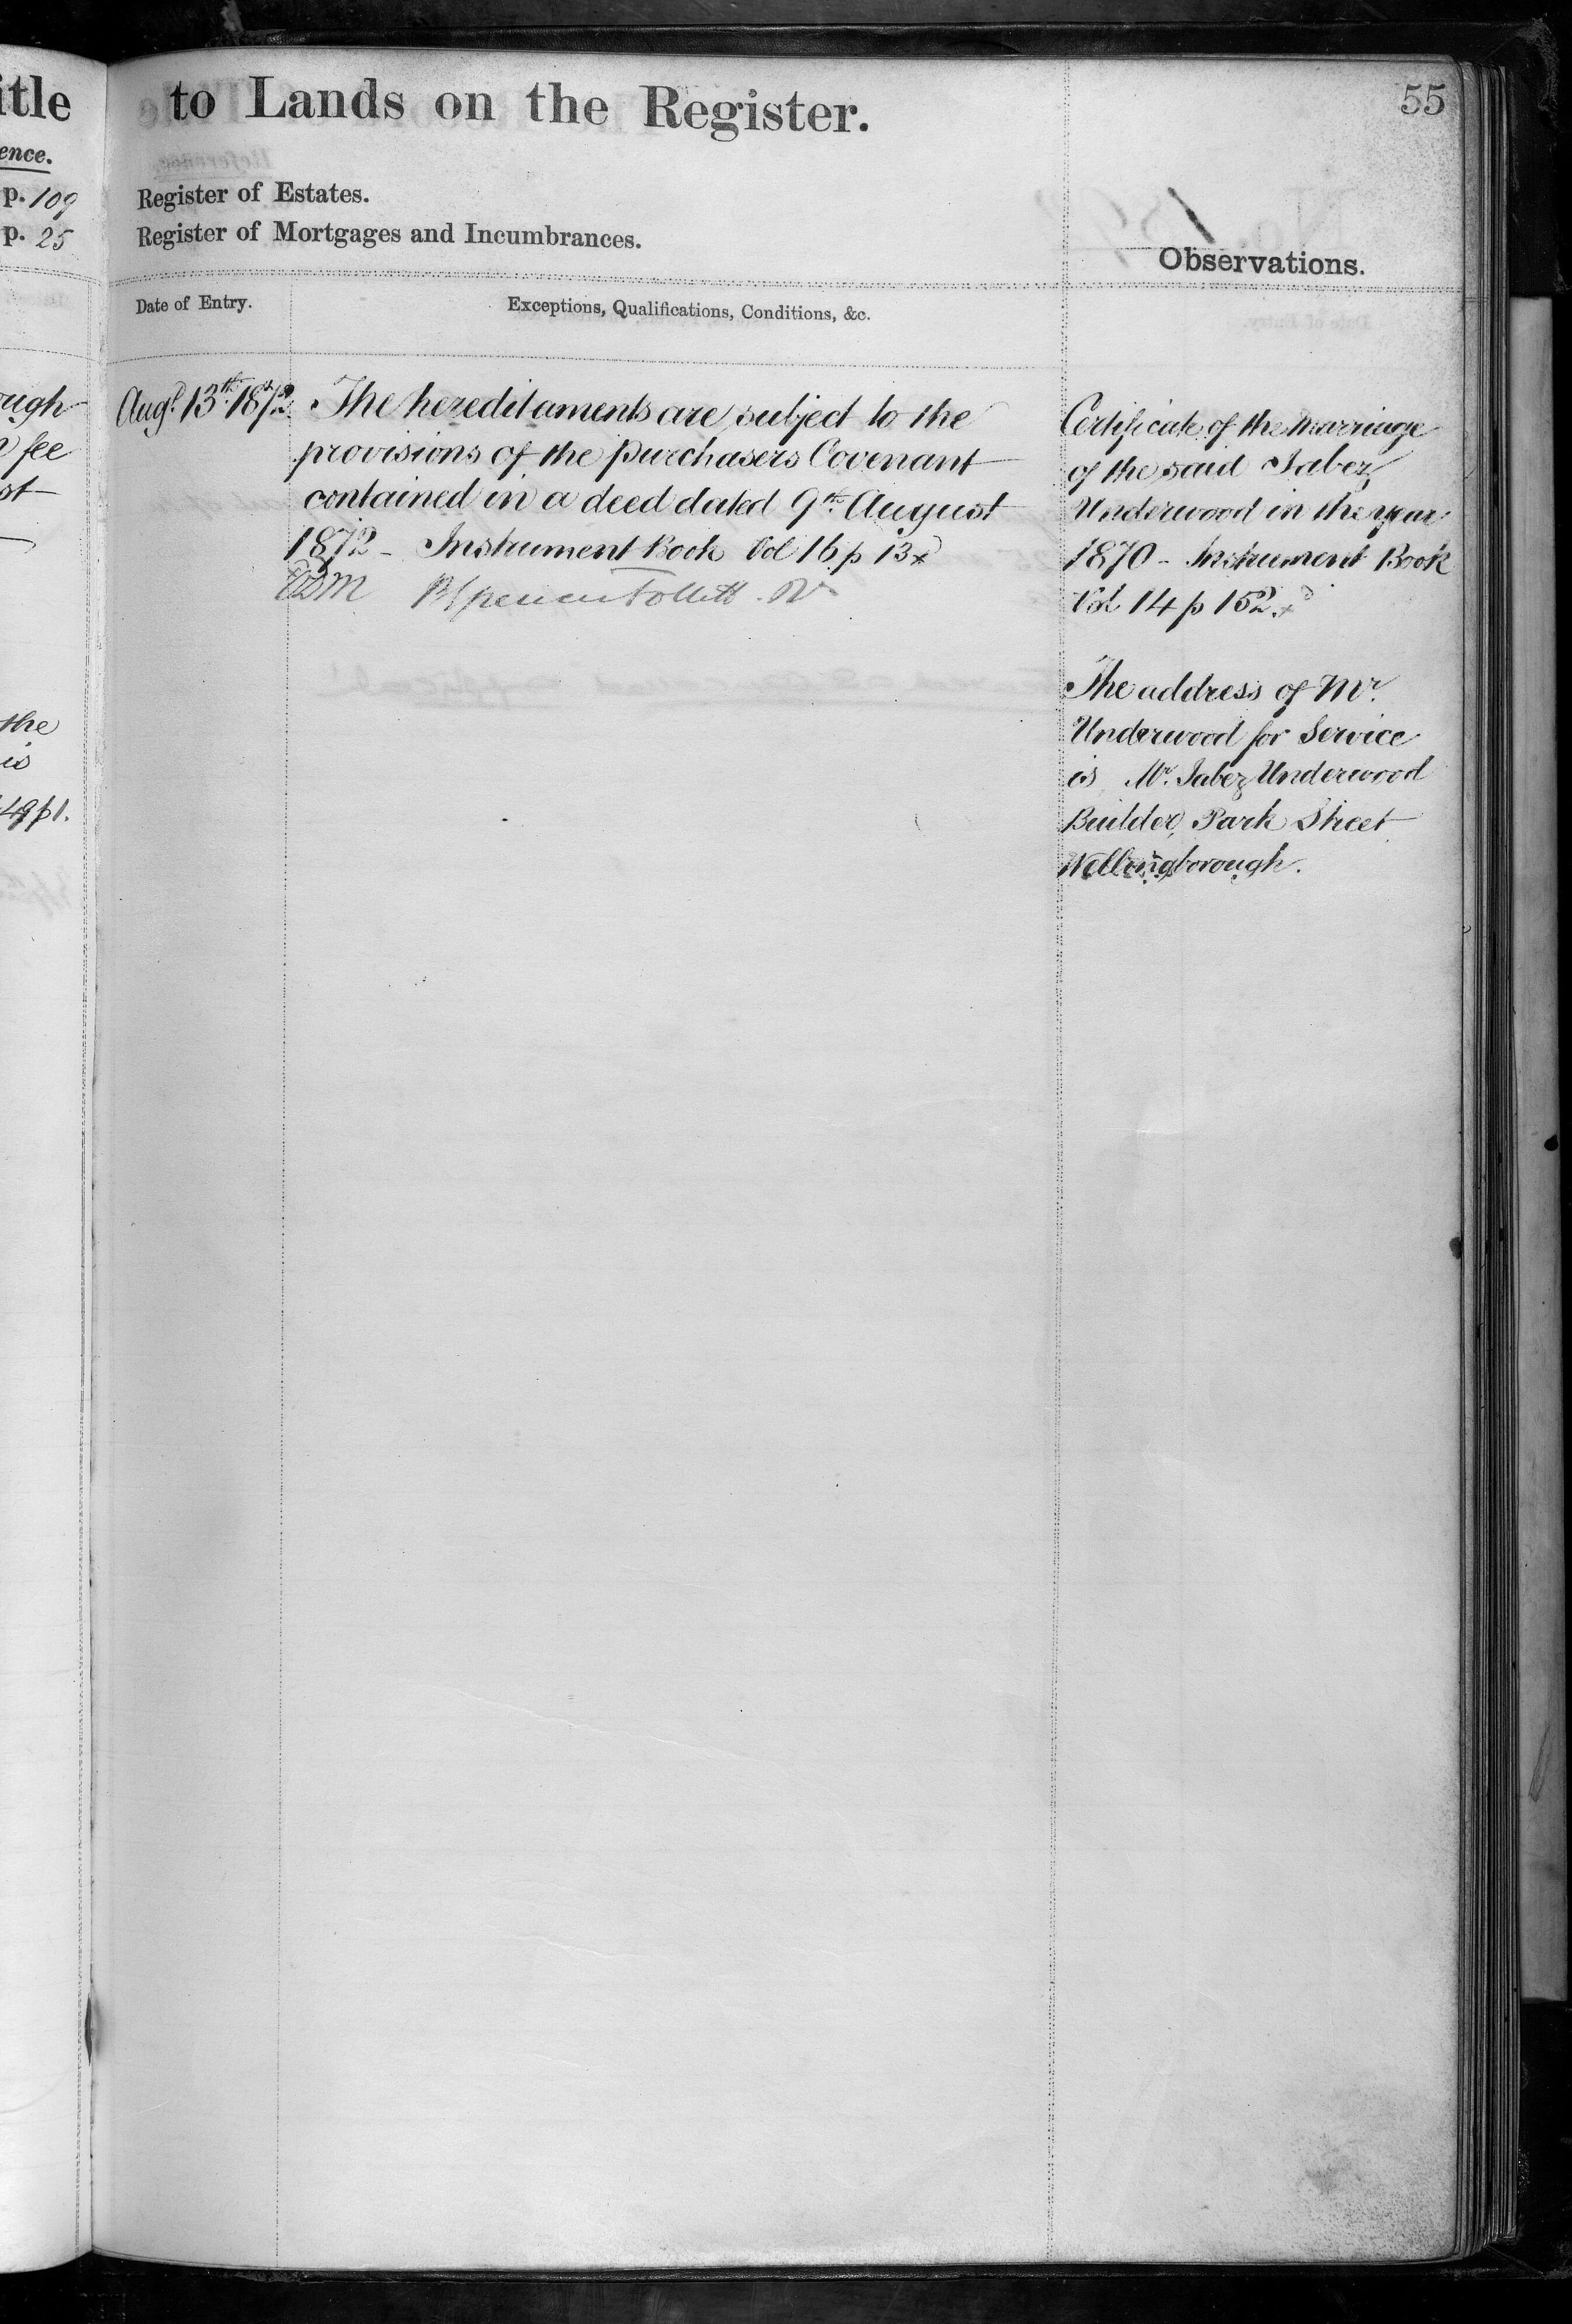 itle
ence.
p. 109
p. 25
ough
fee
st
the
is
49 p 1.
to Lands on the Register.
55
Register of Estates.
Register of Mortgages and Incumbrances.
Observations.
Date of Entry.
Exceptions, Qualifications, Conditions, &c.
Augt. 13th. 1872
The hereditaments are subject to the
provisions of the purchasers Covenant
contained in a deed dated 9th. August
1872 - Instrument Book Vol 16 p 13
Spencer Follett. R
Certificate of the marriage
of the said Jabez
Underwood in the year
1870 - Instrument Book
Vol 14 p 152
The address of Mr.
Underwood for Service
is Mr. Jabez Underwood
Builder, Park Street
Wellingborough.